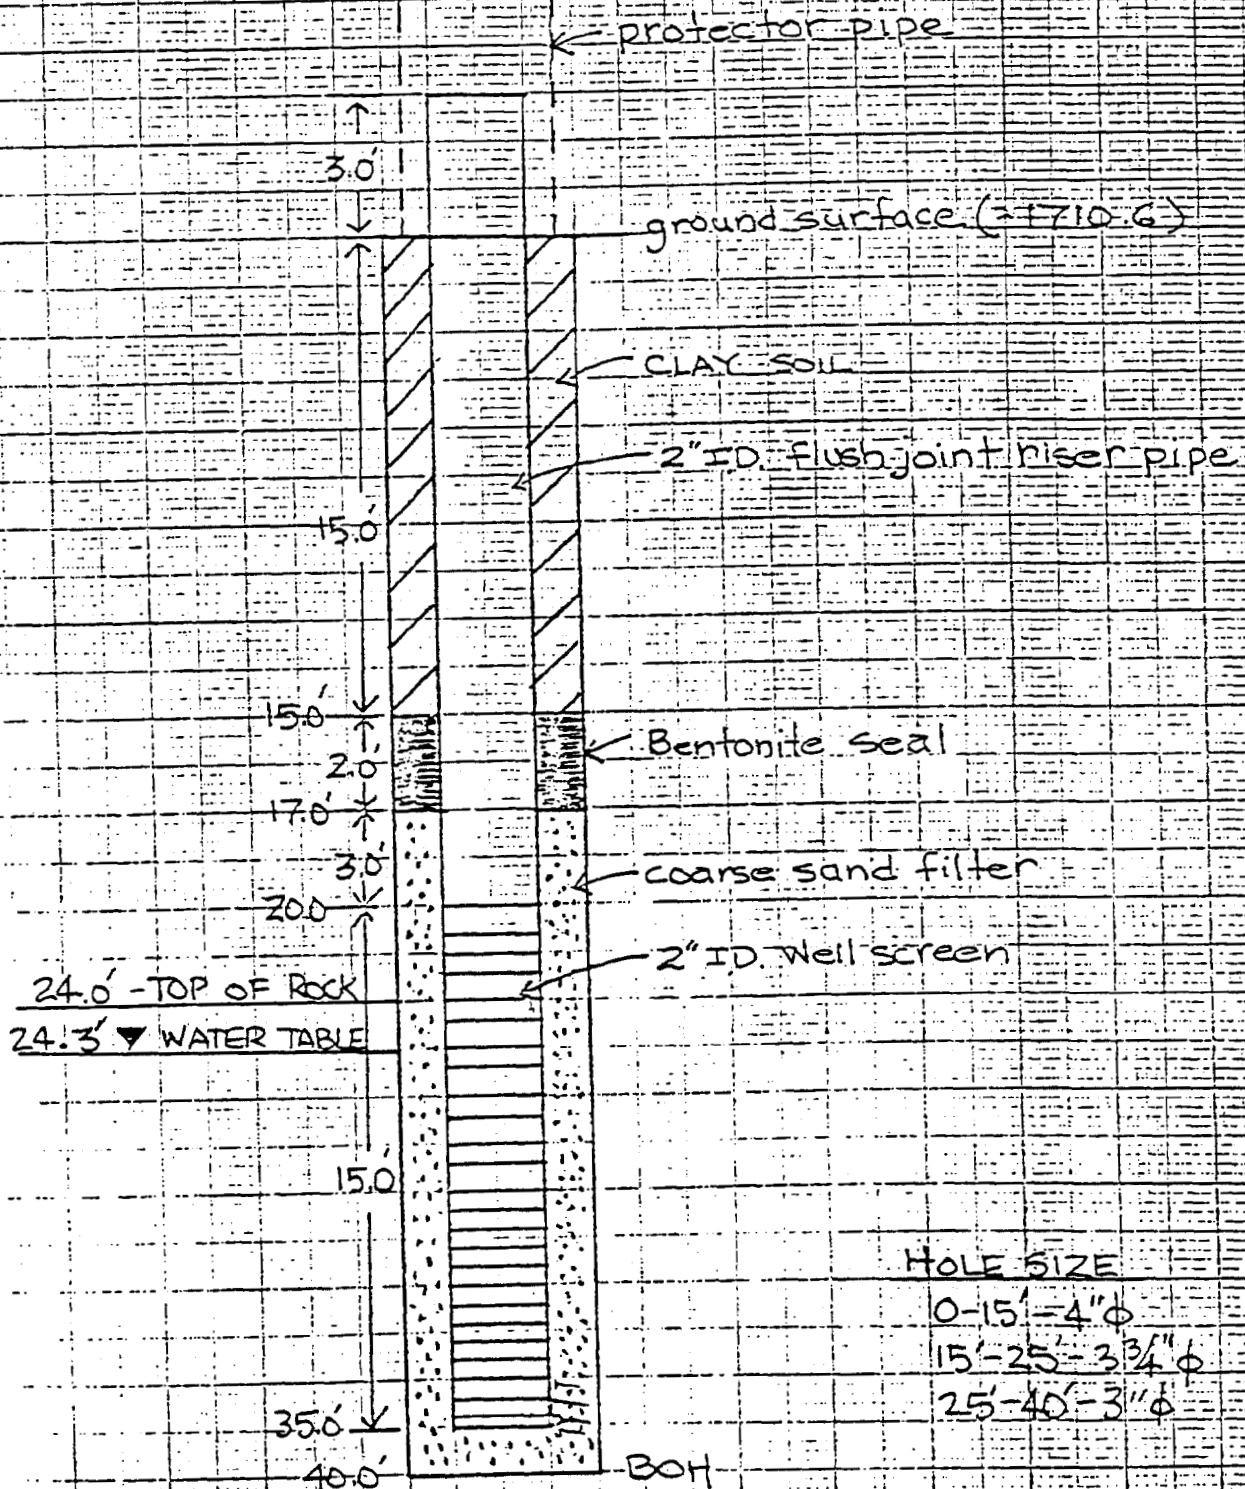 protector pipe
3.0'
ground surface (≈1710.6)
CLAY SOIL
2" I.D. flush joint riser pipe
15.0'
15.0'
Bentonite seal
2.0'
17.0'
3.0'
coarse sand filter
20.0
2" I.D. Well screen
24.0' - TOP OF ROCK
24.3' ▼ WATER TABLE
15.0'
HOLE SIZE
0-15' - 4" ϕ
15'-25' - 3 3/4" ϕ
25'-40' - 3" ϕ
35.0'
40.0'
BOH